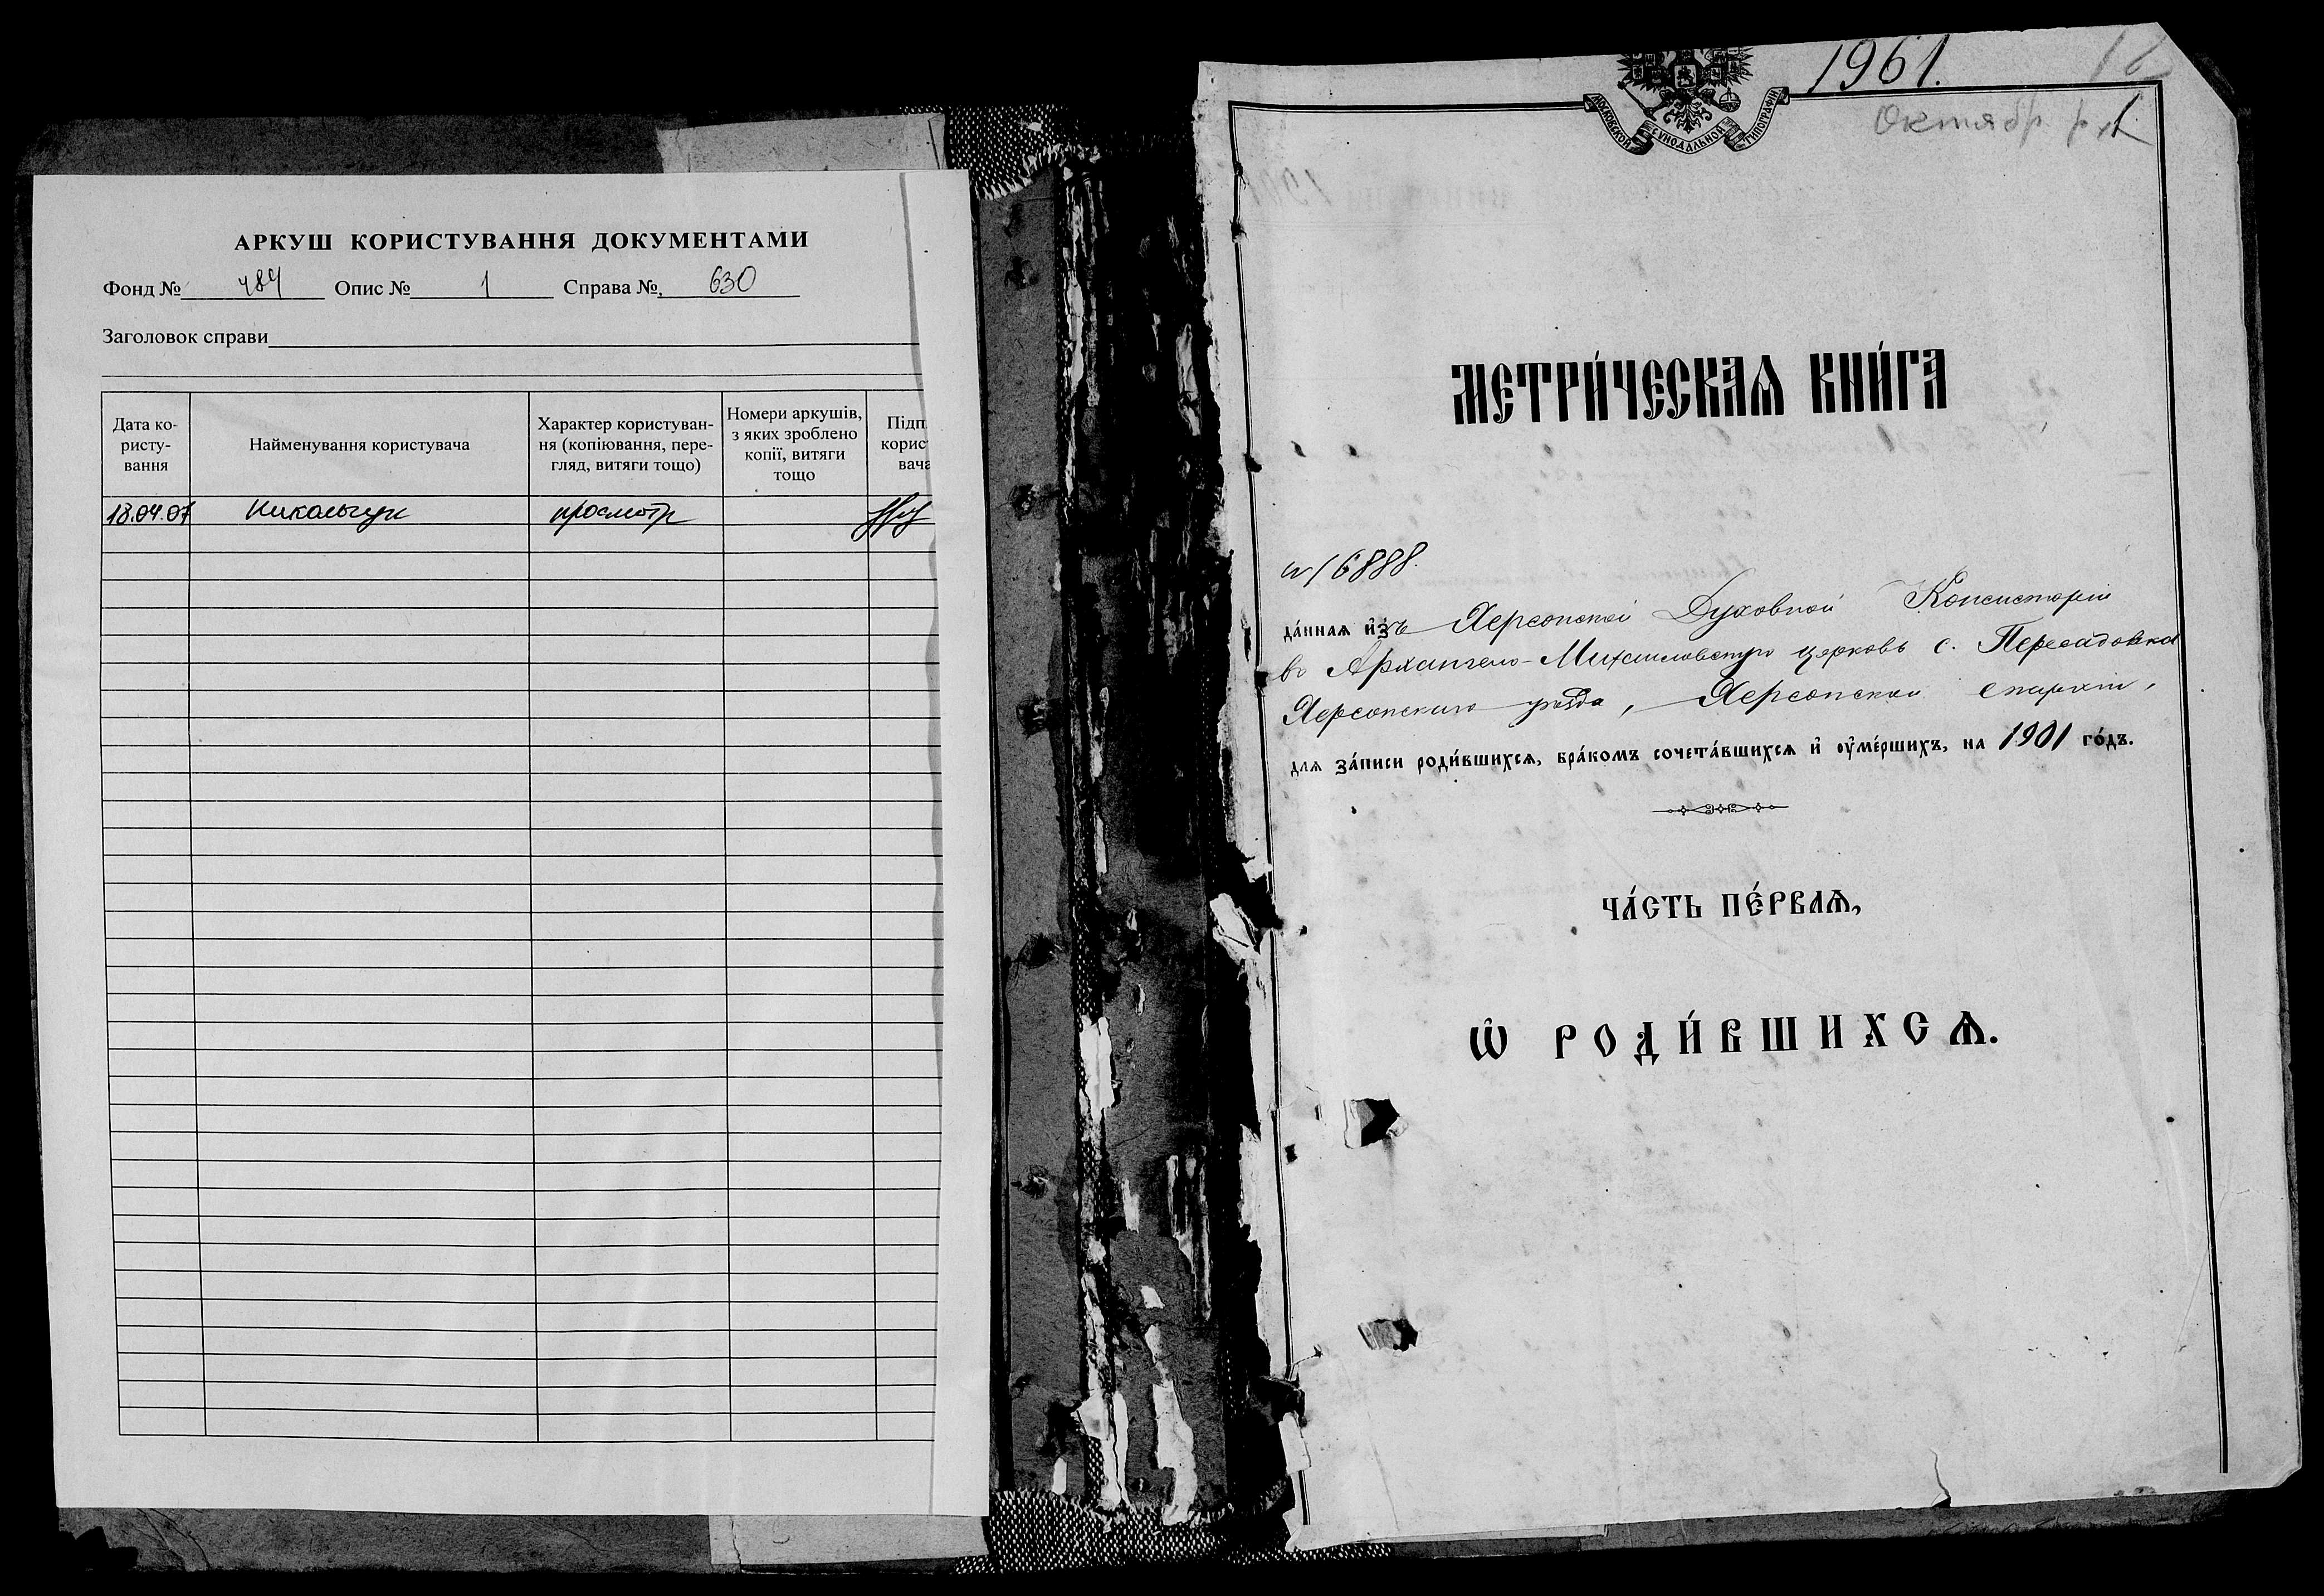 АРКУШ КОРИСТУВАННЯ ДОКУМЕНТАМИ
Фонд № 484 Опис № 1 Справа №. 630
Заголовок справи
Дата ко-
ристу-
вання
Найменування користувача
Характер користуван-
ня (копіювання, пере-
гляд, витяги тощо)
Номери аркушів,
з яких зроблено
копії, витяги
тощо
Підп
корис
вача
18.04.07 просмотр
1961.
16
Октябр. р. 1
МОСКОВСКОЙ СѴНОДАЛЬНОЙ ТИПОГРАФІИ
МЕТРИ́ЧЕСКАѦ КНИ́ГА
№ 16888.
да́ннаѧ и҆зъ Херсонской Духовной Консисторіи
въ Архангело-Михаиловскую церковь с. Пересадовка
Херсонскаго уѣзда, Херсонской епархіи,
для за́писи роди́вшихсѧ, бра́комъ сочета́вшихсѧ и҆ ᲂу҆ме́ршихъ, на 1901 го́дъ.
ЧА́СТЬ ПЕ́РВАѦ,
Ѡ҆ РОДИ́ВШИХСѦ.